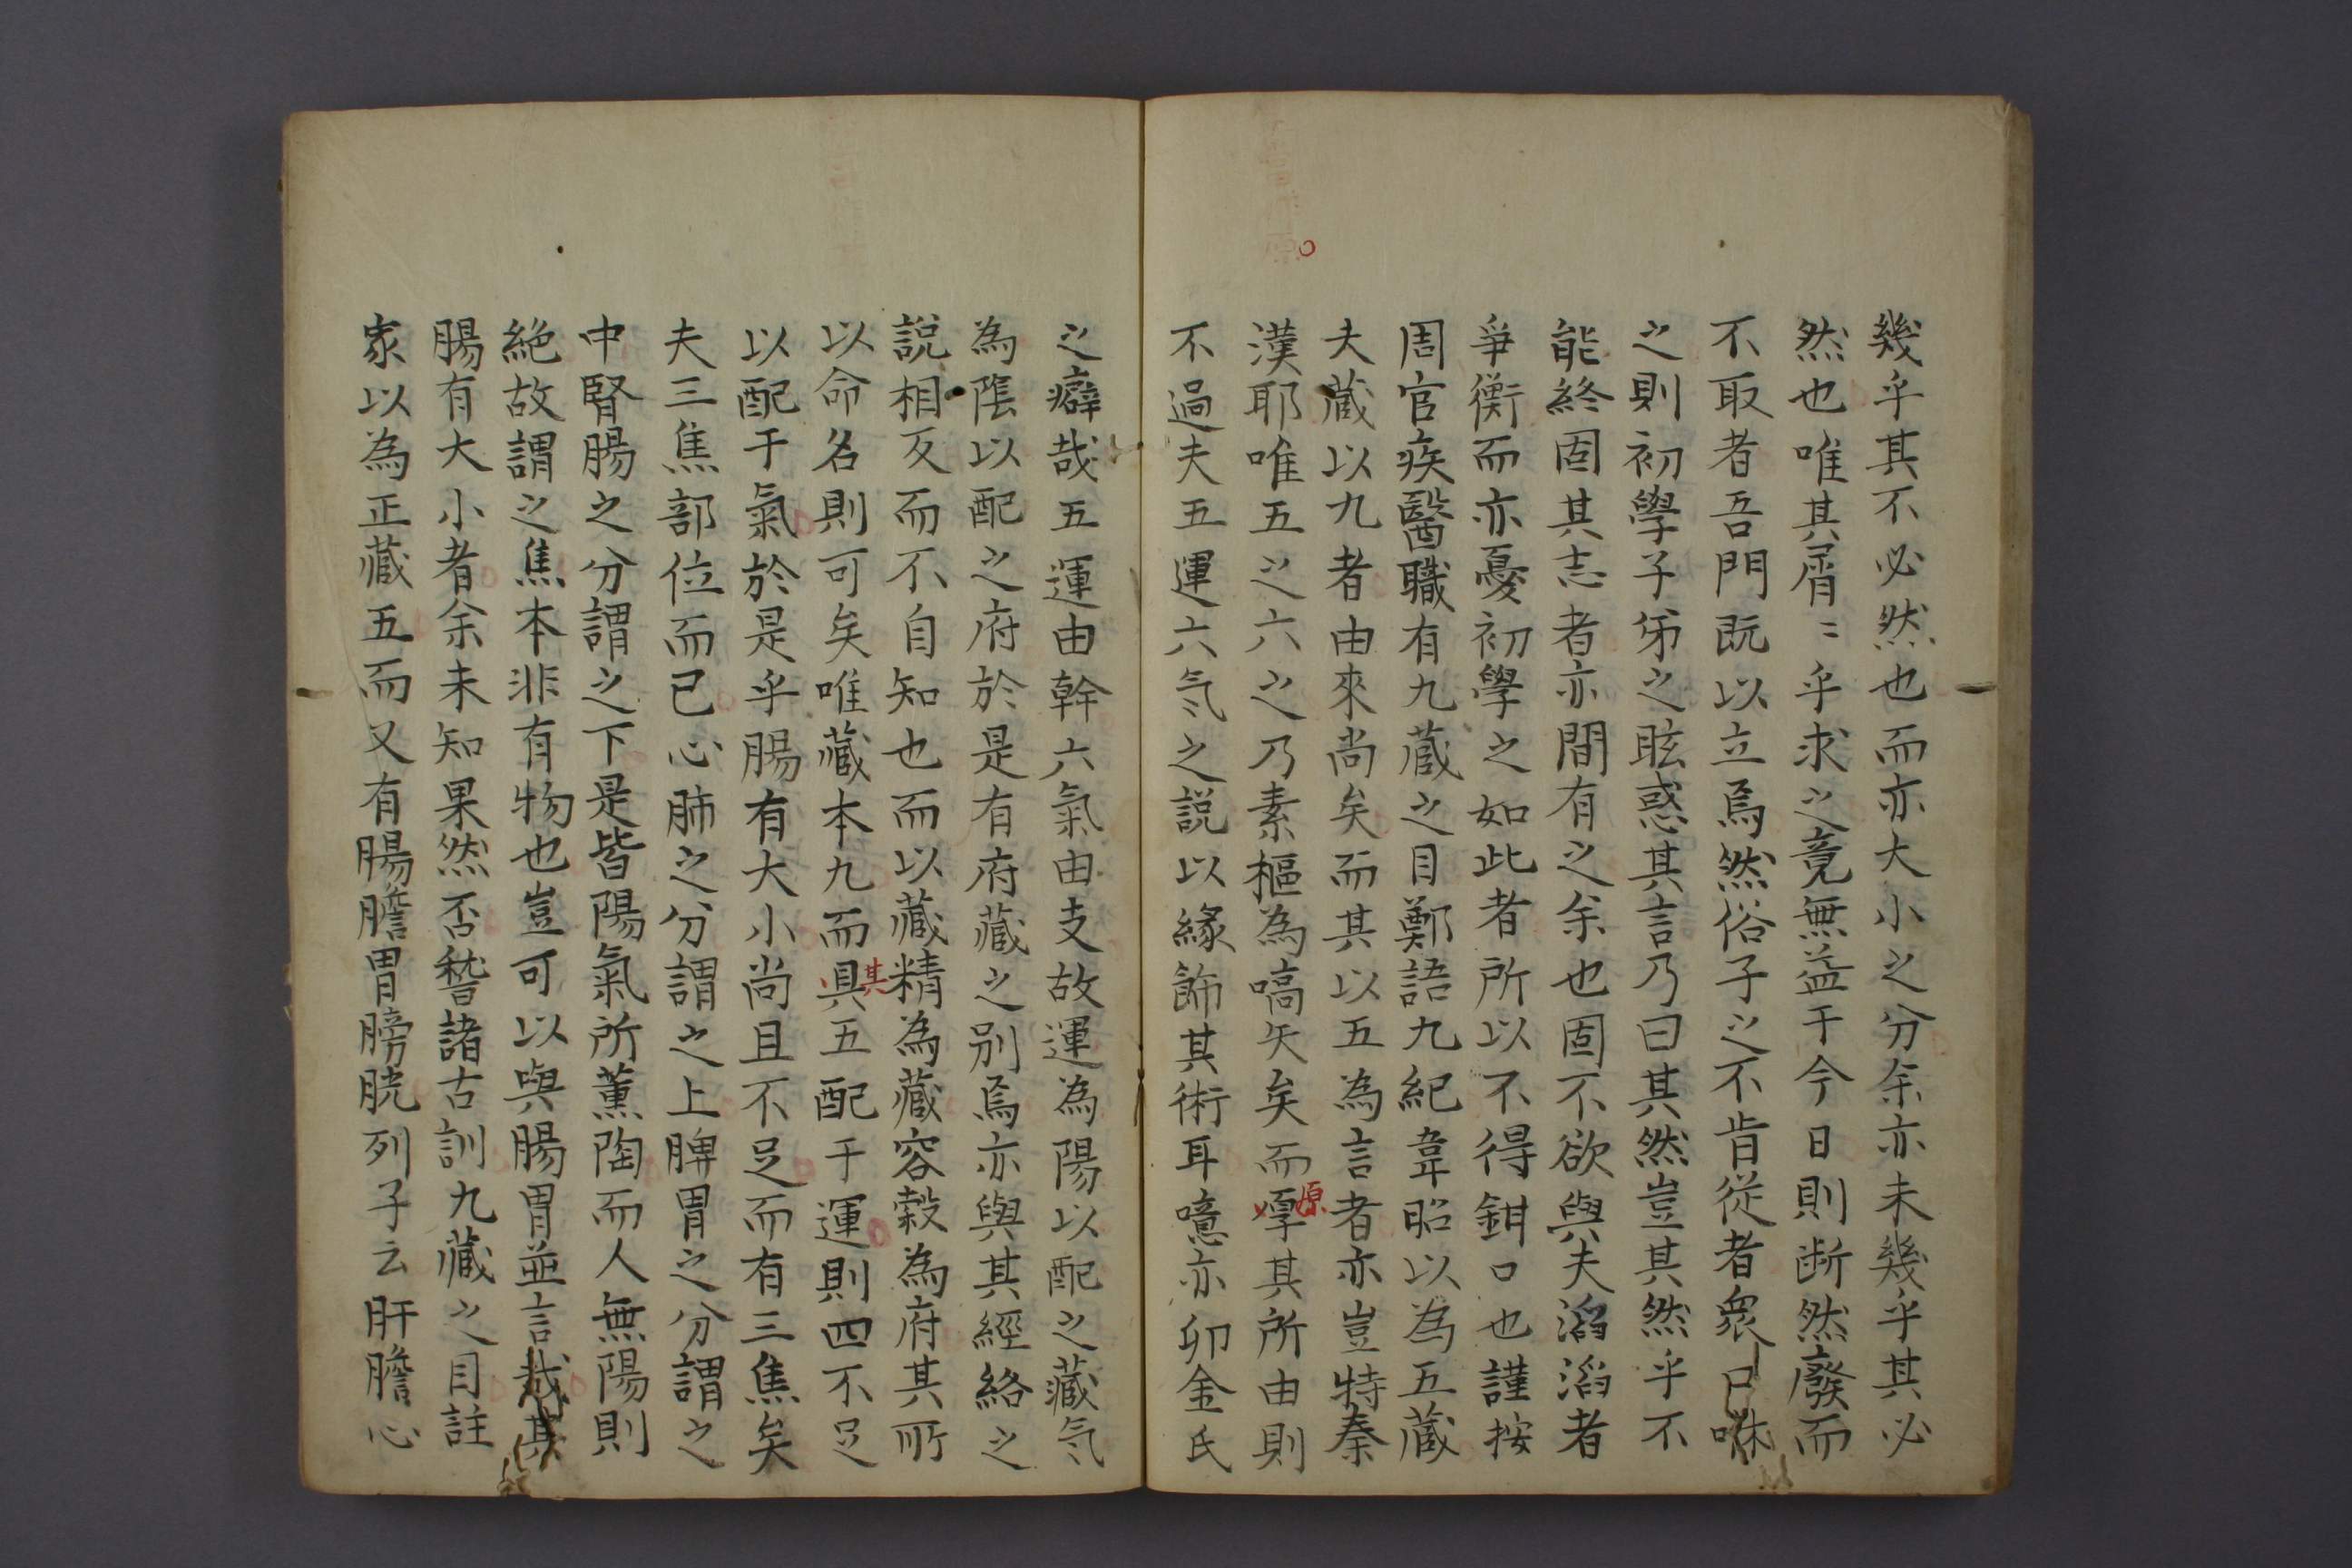 幾乎其不必然也而亦大小之分余亦未幾乎其必
然也唯其屑〻乎求之竟無益于今日則断然廢而
不取者吾門既以立焉然俗子之不肯從者衆已咮
之則初學子弟之眩惑其言乃曰其然豈其然乎不
能終固其志者亦間有之余也固不欲與夫滔滔者
爭衡而亦憂初學之如此者所以不得鉗口也謹按
周官疾醫職有九蔵之目鄭語九紀韋昭以為五蔵
夫蔵以九者由來尚矣而其以五為言者亦豈特秦
漢耶唯五之六之乃素樞為嚆矢矣而厚原其所由則
不過夫五運六気之説以緣飾其術耳噫亦卯金氏
之癖哉五運由幹六氣由支故運為陽以配之藏気
為陰以配之府於是有府藏之別焉亦與其經絡之
説相反而不自知也而以藏精為藏容穀為府其所
以命名則可矣唯藏本九而具其五配于運則四不足
以配于氣於是乎腸有大小尚且不足而有三焦矣
夫三焦部位而已心肺之分謂之上脾胃之分謂之
中腎腸之分謂之下是皆陽氣所薫陶而人無陽則
絶故謂之焦本非有物也豈可以與腸胃並言哉其
腸有大小者余未知果然否嵇諸古訓九藏之目註
家以為正藏五而又有腸膽胃膀胱列子云肝膽心